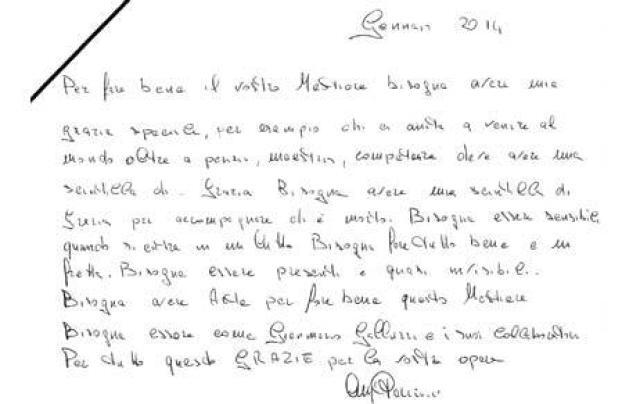 Gennaio 2014
Per fare bene il vostro Mestiere bisogna avere una
grazia speciale, per esempio chi ci aiuta a venire al
mondo oltre a pinze, maestria, competenza deve avere una
scintilla di Grazia Bisogna avere una scintilla di
Grazia per accompagnare chi è morto. Bisogna essere sensibili,
quando si entra in un lutto Bisogna fare tutto bene e in
fretta. Bisogna essere presenti e quasi invisibili.
Bisogna avere Arte per fare bene questo Mestiere
Bisogna essere come Germano Gallucci e i suoi collaboratori
Per tutto questo GRAZIE per la vostra opera